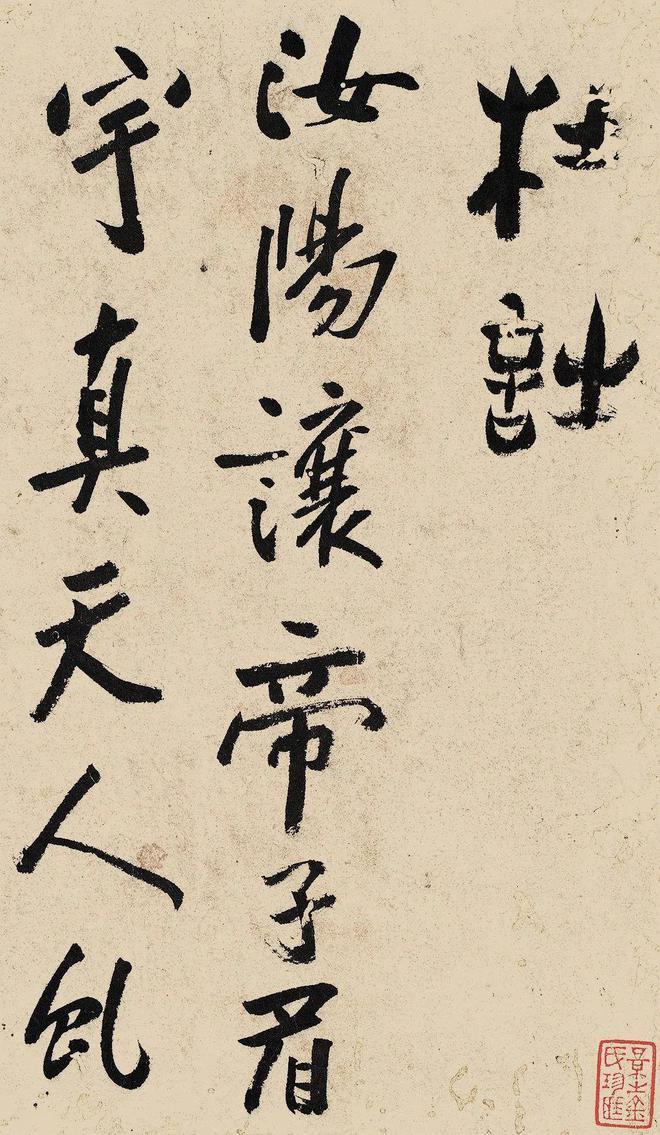 杜詩
汝陽讓帝子眉
宇真天人虬